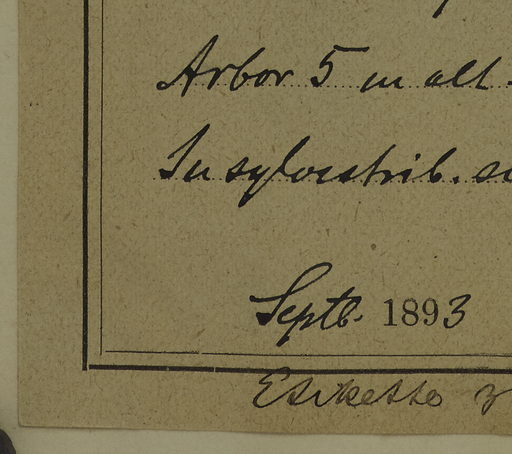 Arbor 5 m alt.
In sylvestrib.
Septb. 1893
Etikette z